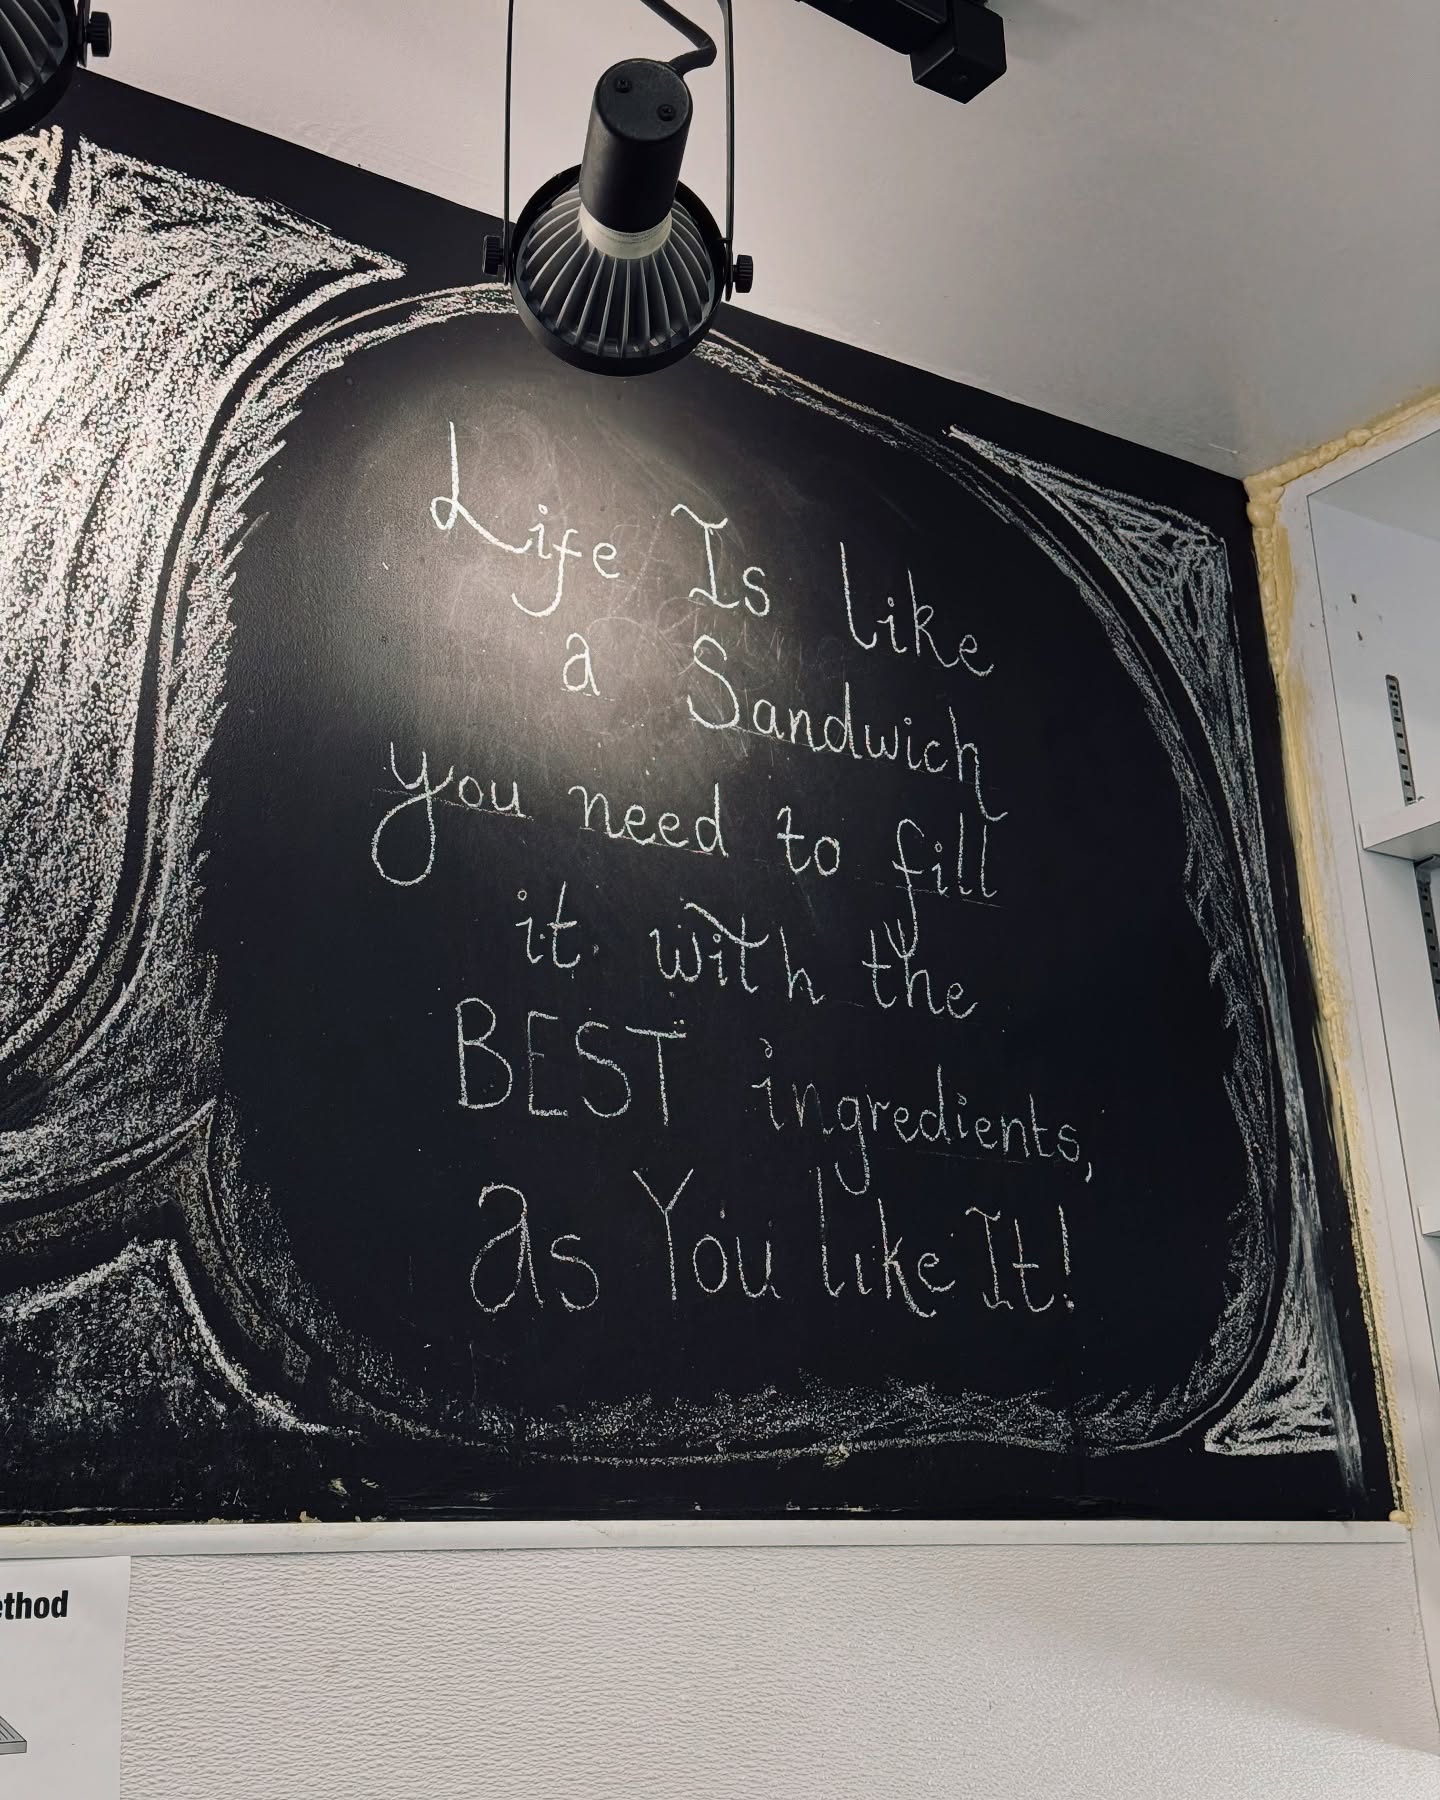 Life Is like
a Sandwich
you need to fill
it with the
BEST ingredients,
as You like It!
ethod